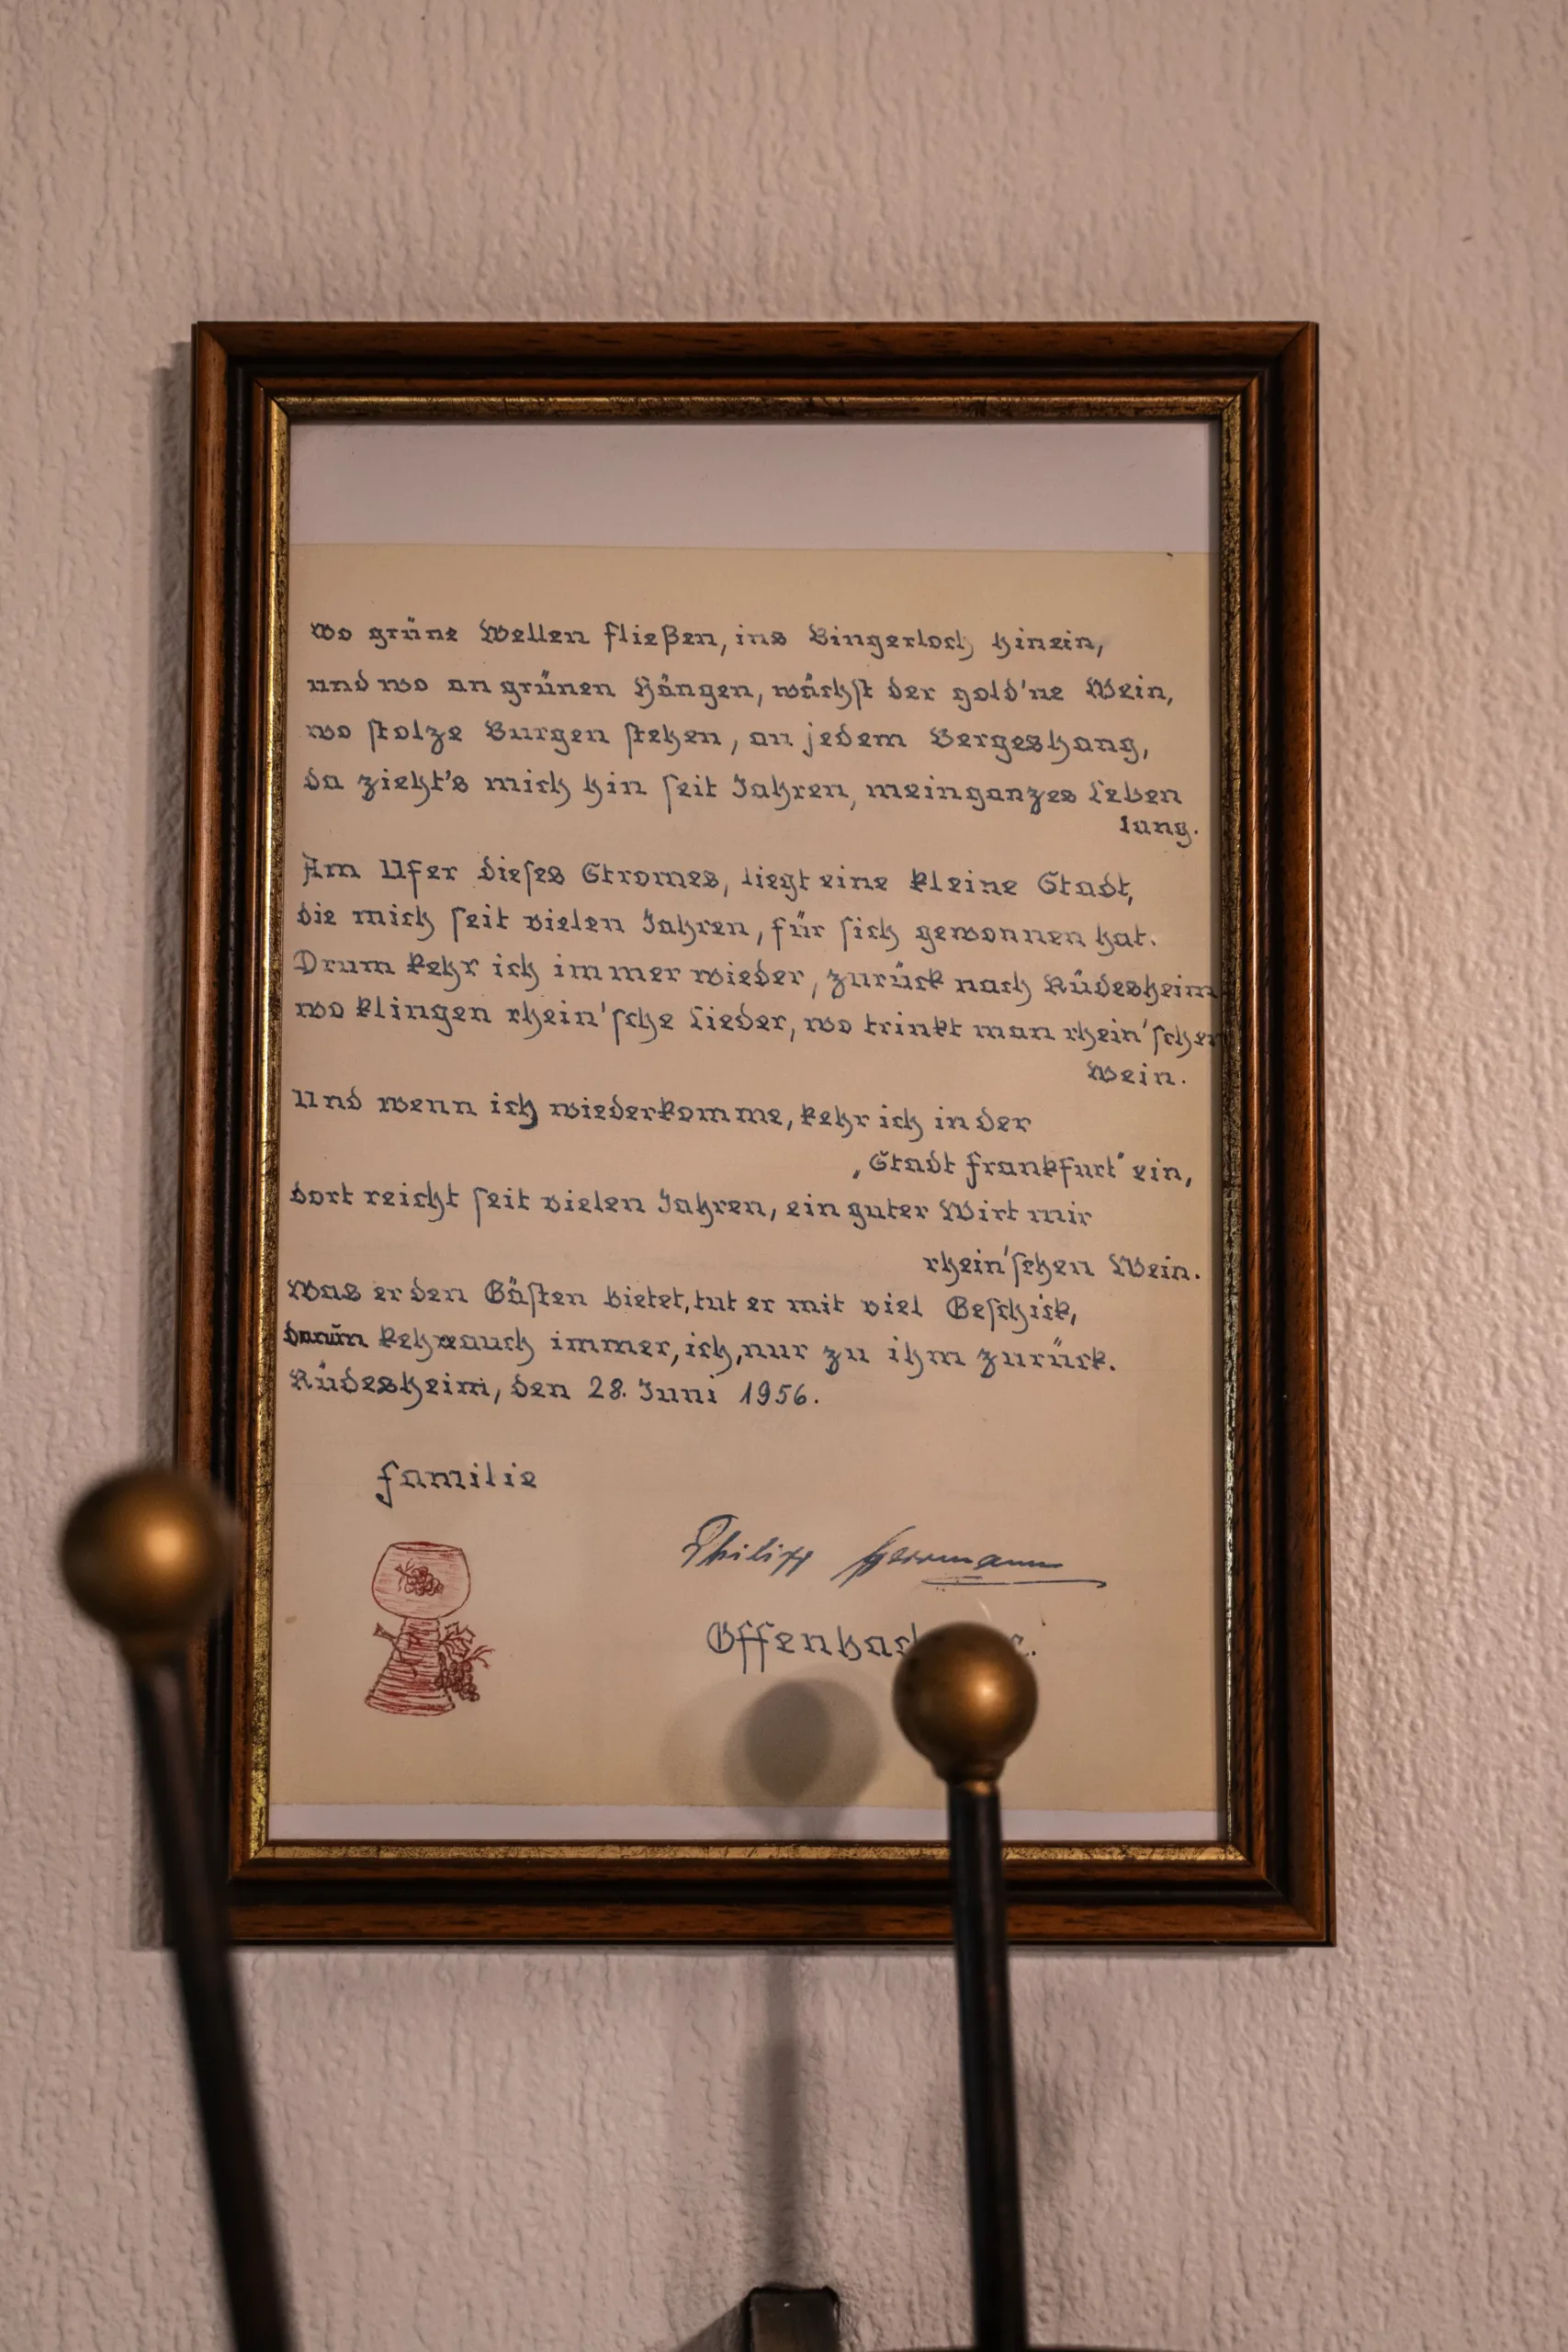 Wo grüne Wellen fließen, ins Bingerloch hinein,
und wo an grünen Hängen, wächst der gold'ne Wein,
wo stolze Burgen stehen, an jedem Bergeshang,
da zieht's mich hin seit Jahren, mein ganzes Leben
lang.
Am Ufer dieses Stromes, liegt eine kleine Stadt,
die mich seit vielen Jahren, für sich gewonnen hat.
Drum kehr ich immer wieder, zurück nach Rüdesheim
wo klingen rhein'sche Lieder, wo trinkt man rhein'schen
Wein.
Und wenn ich wiederkomme, kehr ich in der
„Stadt Frankfurt" ein,
dort reicht seit vielen Jahren, ein guter Wirt mir
rhein'schen Wein.
Was er den Gästen bietet, tut er mit viel Geschick,
darum kehr auch immer, ich, nur zu ihm zurück.
Rüdesheim, den 28. Juni 1956.
Familie
Philipp Herrmann